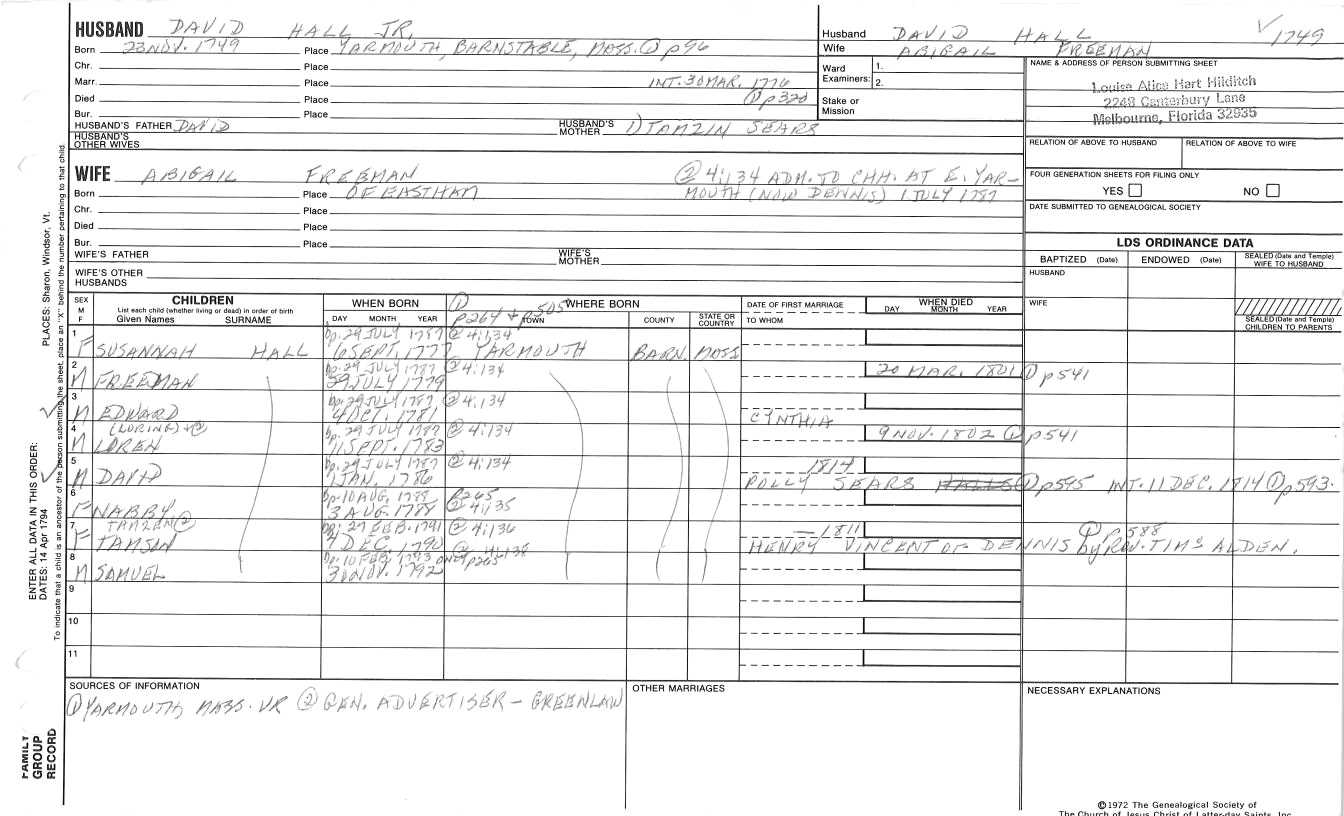 HUSBAND DAVID HALL JR.
Born 23 NOV. 1749 Place YARMOUTH, BARNSTABLE, MASS. ① p96
Chr. Place
Marr. Place INT. 30 MAR. 1776
Died Place ① p320
Bur. Place
HUSBAND'S FATHER DAVID HUSBAND'S MOTHER 1) TAMZIN SEARS
HUSBAND'S OTHER WIVES
Husband DAVID HALL ✓ 1749
Wife ABIGAIL FREEMAN
Ward Examiners: 1.
2.
Stake or Mission
NAME & ADDRESS OF PERSON SUBMITTING SHEET
Louise Alice Hart Hilditch
2248 Canterbury Lane
Melbourne, Florida 32935
RELATION OF ABOVE TO HUSBAND RELATION OF ABOVE TO WIFE
FOUR GENERATION SHEETS FOR FILING ONLY
YES NO
DATE SUBMITTED TO GENEALOGICAL SOCIETY
WIFE ABIGAIL FREEMAN ② 4:134 ADM. TO CHH. AT E. YAR-
Born Place OF EASTHAM MOUTH (NOW DENNIS) 1 JULY 1787
Chr. Place
Died Place
Bur. Place
WIFE'S FATHER WIFE'S MOTHER
WIFE'S OTHER HUSBANDS
LDS ORDINANCE DATA
BAPTIZED (Date) ENDOWED (Date) SEALED (Date and Temple) WIFE TO HUSBAND
HUSBAND
WIFE
SEALED (Date and Temple) CHILDREN TO PARENTS
SEX M F
CHILDREN
List each child (whether living or dead) in order of birth
Given Names SURNAME
WHEN BORN
DAY MONTH YEAR
① p264 & p505
WHERE BORN
TOWN COUNTY STATE OR COUNTRY
DATE OF FIRST MARRIAGE
TO WHOM
WHEN DIED
DAY MONTH YEAR
1 bp. 29 JULY 1787 ② 4:134
F SUSANNAH HALL 6 SEPT. 1777 YARMOUTH BARN. MASS
2 bp. 29 JULY 1787 ② 4:134 20 MAR. 1801 ① p541
M FREEMAN 29 JULY 1779
3 bp. 29 JULY 1787 ② 4:134
M EDWARD 4 OCT. 1781 CYNTHIA
4 (LORING) + ② bp. 29 JULY 1787 ② 4:134 9 NOV. 1802 ① p541
M LOREN 11 SEPT. 1783
5 bp. 29 JULY 1787 ② 4:134 1814
M DAVID 7 JAN. 1786 POLLY SEARS HALLS ① p595 INT. 11 DEC. 1814 ① p593.
6 bp. 10 AUG. 1788 p265
F NABBY 3 AUG. 1788 ② 4:135
7 TAMZEN ② bp. 27 FEB. 1791 ② 4:136 — 1811 ① p588
F TAMSON 4 DEC. 1790 HENRY VINCENT OF DENNIS by REV. TIMº ALDEN.
8 bp. 10 FEB. 1793 p265
M SAMUEL 30 NOV. 1792
9
10
11
SOURCES OF INFORMATION
① YARMOUTH, MASS. VR ② GEN. ADVERTISER – GREENLAW
OTHER MARRIAGES
NECESSARY EXPLANATIONS
©1972 The Genealogical Society of
The Church of Jesus Christ of Latter-day Saints, Inc.
PLACES: Sharon, Windsor, Vt.
ENTER ALL DATA IN THIS ORDER:
DATES: 14 Apr 1794
To indicate that a child is an ancestor of the person submitting the sheet, place an "X" behind the number pertaining to that child.
FAMILY GROUP RECORD